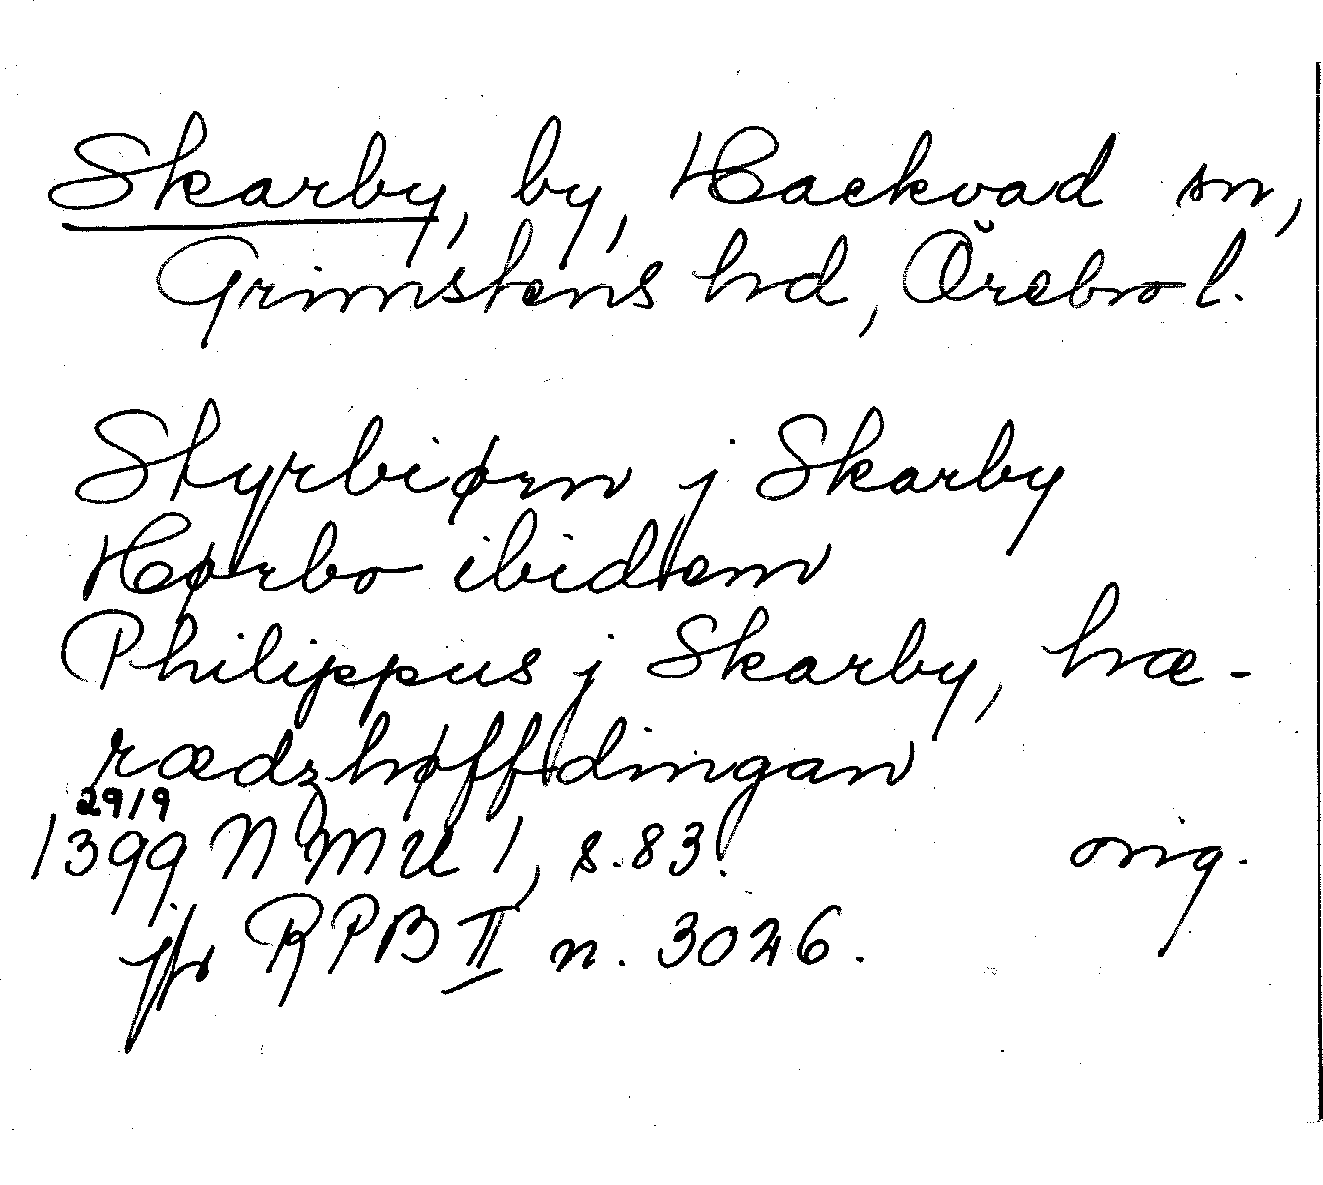 Skarby, by, Hackvad sn,
Grimstens hd, Örebro l.
Styrbiørn j Skarby
Hørbo ibidem
Philippus j Skarby, hæ-
rædzhøffdingan
29/9
1399 NMU 1, s. 83. orig.
jfr RPB II n. 3026.